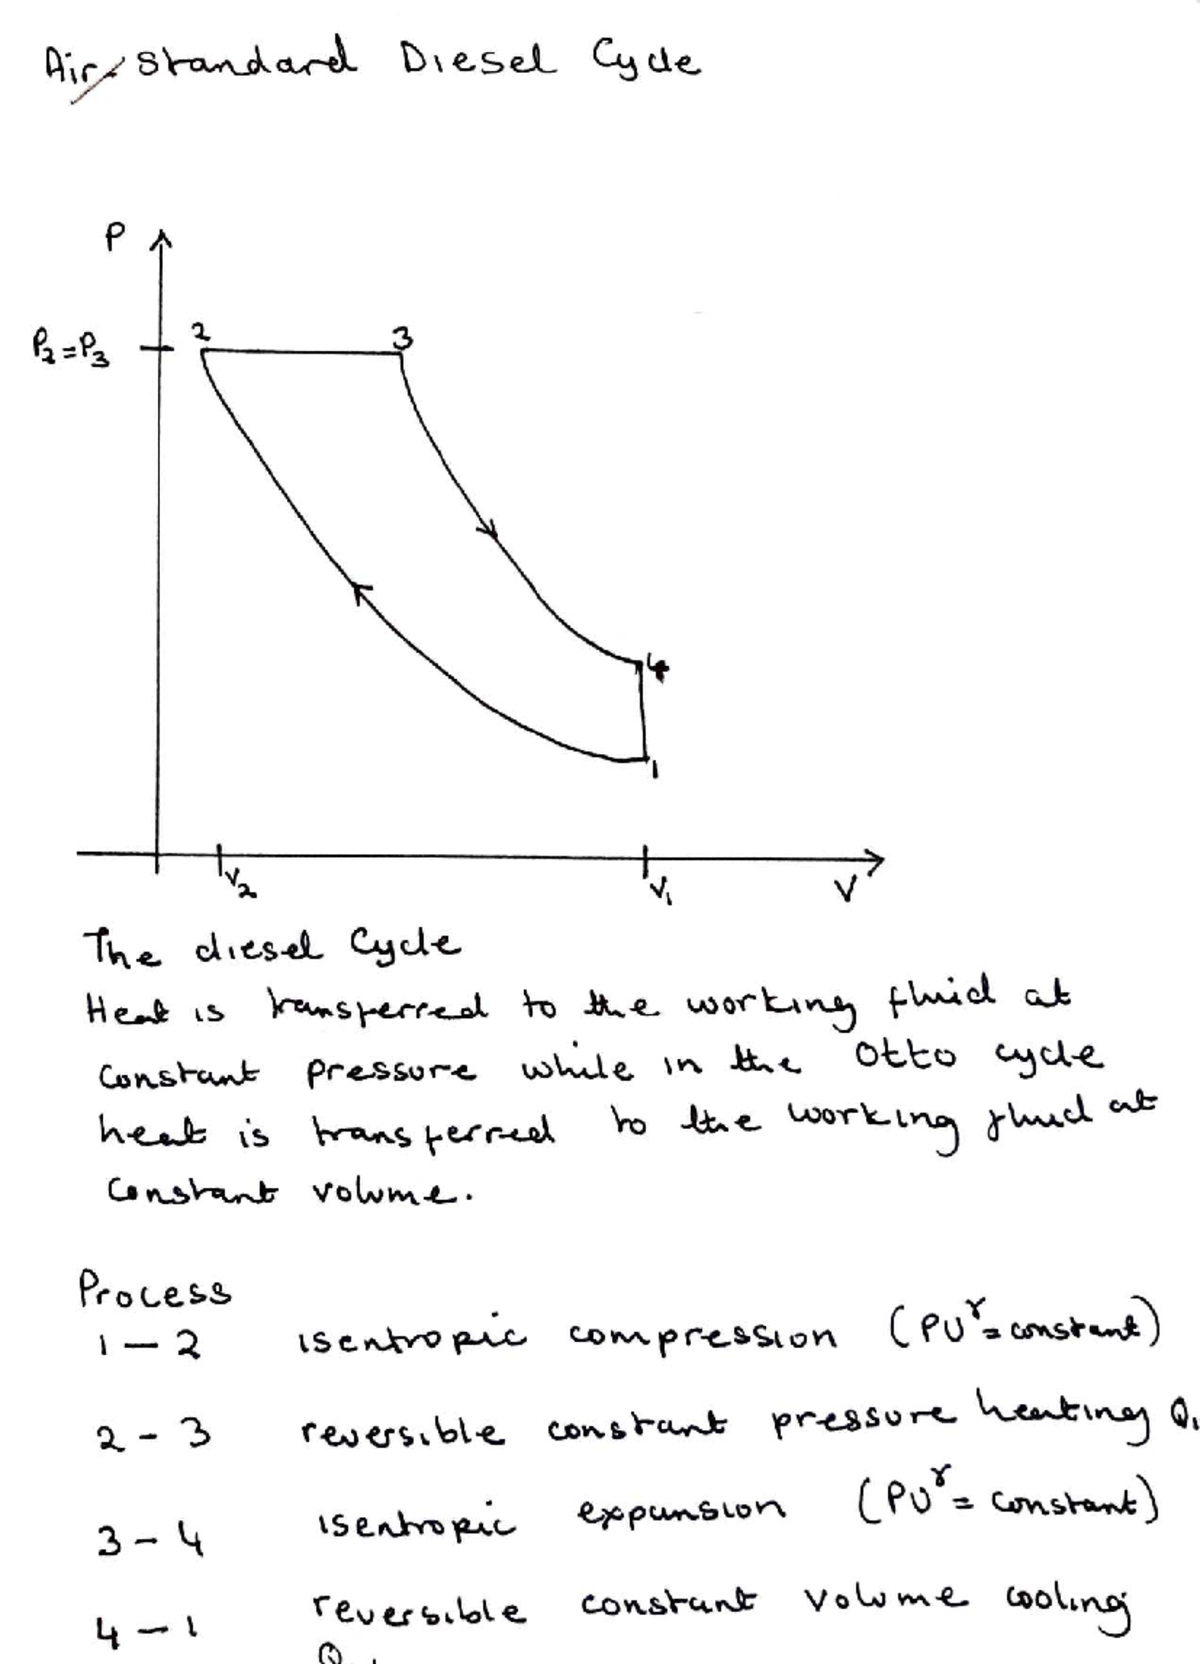 Air-Standard Diesel Cycle
P
P2=P3
2
3
4
1
V2
V1
V
The diesel Cycle
Heat is transferred to the working fluid at
constant pressure while in the Otto cycle
heat is transferred to the working fluid at
constant volume.
Process
1 - 2 isentropic compression (PV^γ = constant)
2 - 3 reversible constant pressure heating Q1
3 - 4 isentropic expansion (PV^γ = constant)
4 - 1 reversible constant volume cooling